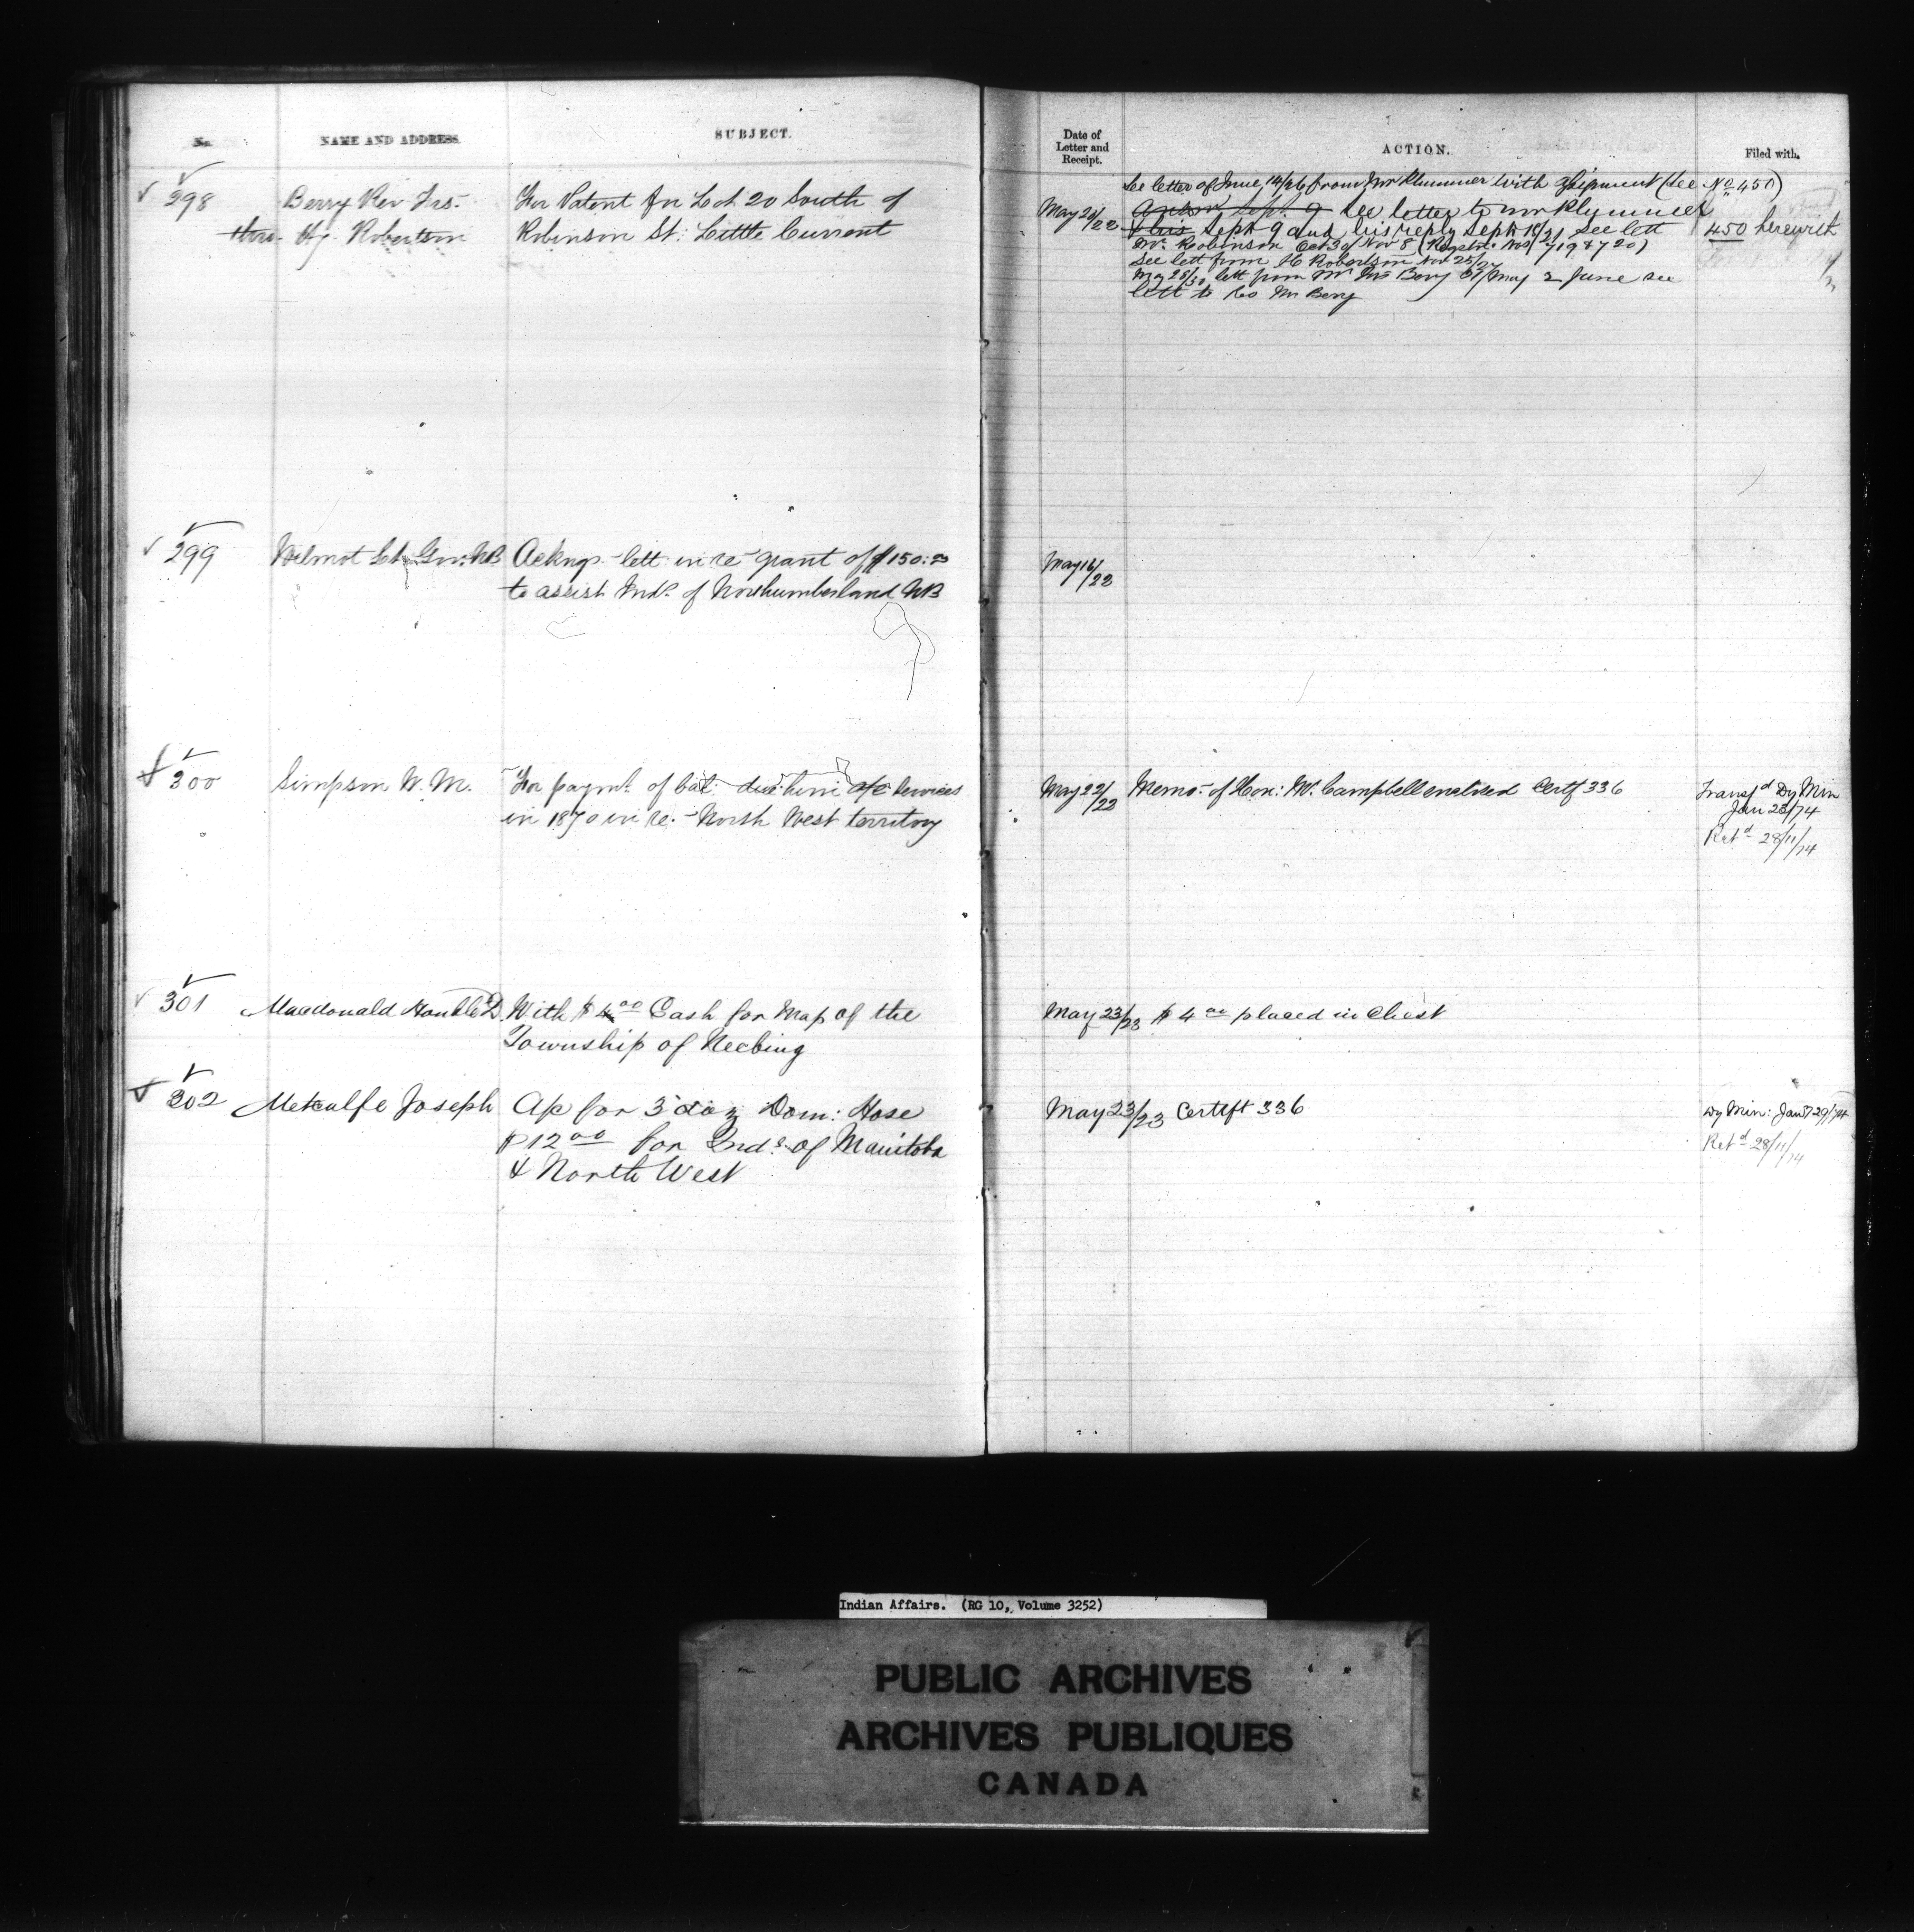 No. NAME AND ADDRESS. SUBJECT.
298 Berry Rev Jas. For Patent for Lot 20 South of
thro. Hy. Robertson Robinson St: Little Current
299 Wilmot Lt. Gov. NB Ackngs lett in re grant of $150.00
to assist Inds. of Northumberland NB
300 Simpson W. M. For paymt. of bal: due him a/c services
in 1870 in re. North West territory
301 Macdonald Honble D. With $4.00 Cash for Map of the
Township of Neebing
302 Metcalfe Joseph A/c for 3 doz Dom: Hose
$12.00 for Inds. of Manitoba
& North West
Date of Letter and Receipt. ACTION. Filed with.
See letter of June 14/26 from Mr Plummer with assignment (See No 450)
May 20/22 Answr Sept. 9 See letter to Mr Plummer
this Sept 9 and his reply Sept 18/21 See lett 450 herewith
Mr. Robinson Oct 30/ Nov 8 (Registr. Nos 719 & 720)
See lett from H Robertson Nov 25/
May 28/30 lett from Mr Jas Berry 31/May 2 June see
lett to Rev Mr Berry
May 16/22
May 22/23 Memo. of Hon: Mr. Campbell enclosed Certf 336 Transfd Dy Min
Jan 28/74
Retd 28/11/74
May 23/23 $4.00 placed in Chest
May 23/23 Certift 336 Dy Min: Jany 29/74
Retd 28/11/74
Indian Affairs. (RG 10, Volume 3252)
PUBLIC ARCHIVES
ARCHIVES PUBLIQUES
CANADA